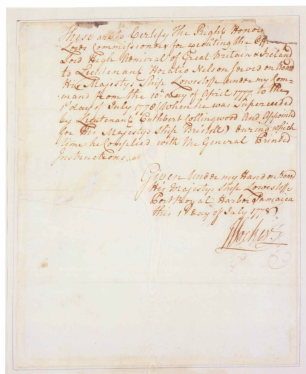 These are to Certify the Right Honble
Lords Commissioners for executing the Office
Lord High Admiral of Great Britain & Ireland
Lieutenant Horatio Nelson served on board
His Majestys Ship Lowestoffe under my Com-
mand from the 10th day of April 1777 to the
1st day of July 1778, When he was superceeded
by Lieutenant Cuthbert Collingwood And appointed
for His Majestys Ship Bristol) During which
time he Complied with the General Printed
Instructions.
Given Under my Hand on board
His Majestys Ship Lowestoffe
Port Royal Harbor Jamaica
this 1st Day of July 1778.
Wm Locker